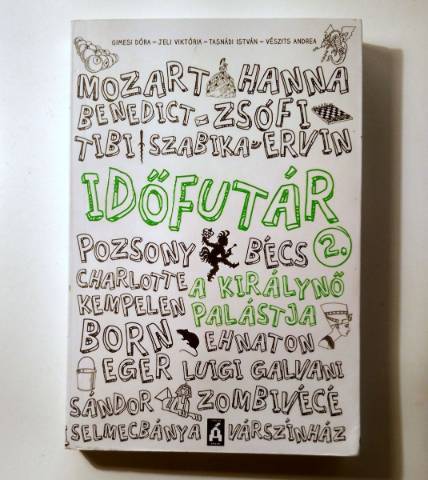 GIMESI DÓRA – JELI VIKTÓRIA – TASNÁDI ISTVÁN – VÉSZITS ANDREA
MOZART HANNA
BENEDICT – ZSÓFI
TIBI SZABIKA ERVIN
IDŐFUTÁR
POZSONY BÉCS 2.
CHARLOTTE A KIRÁLYNŐ
KEMPELEN PALÁSTJA
BORN EHNATON
EGER LUIGI GALVANI
SÁNDOR ZOMBIVÉCÉ
SELMECBÁNYA VÁRSZÍNHÁZ